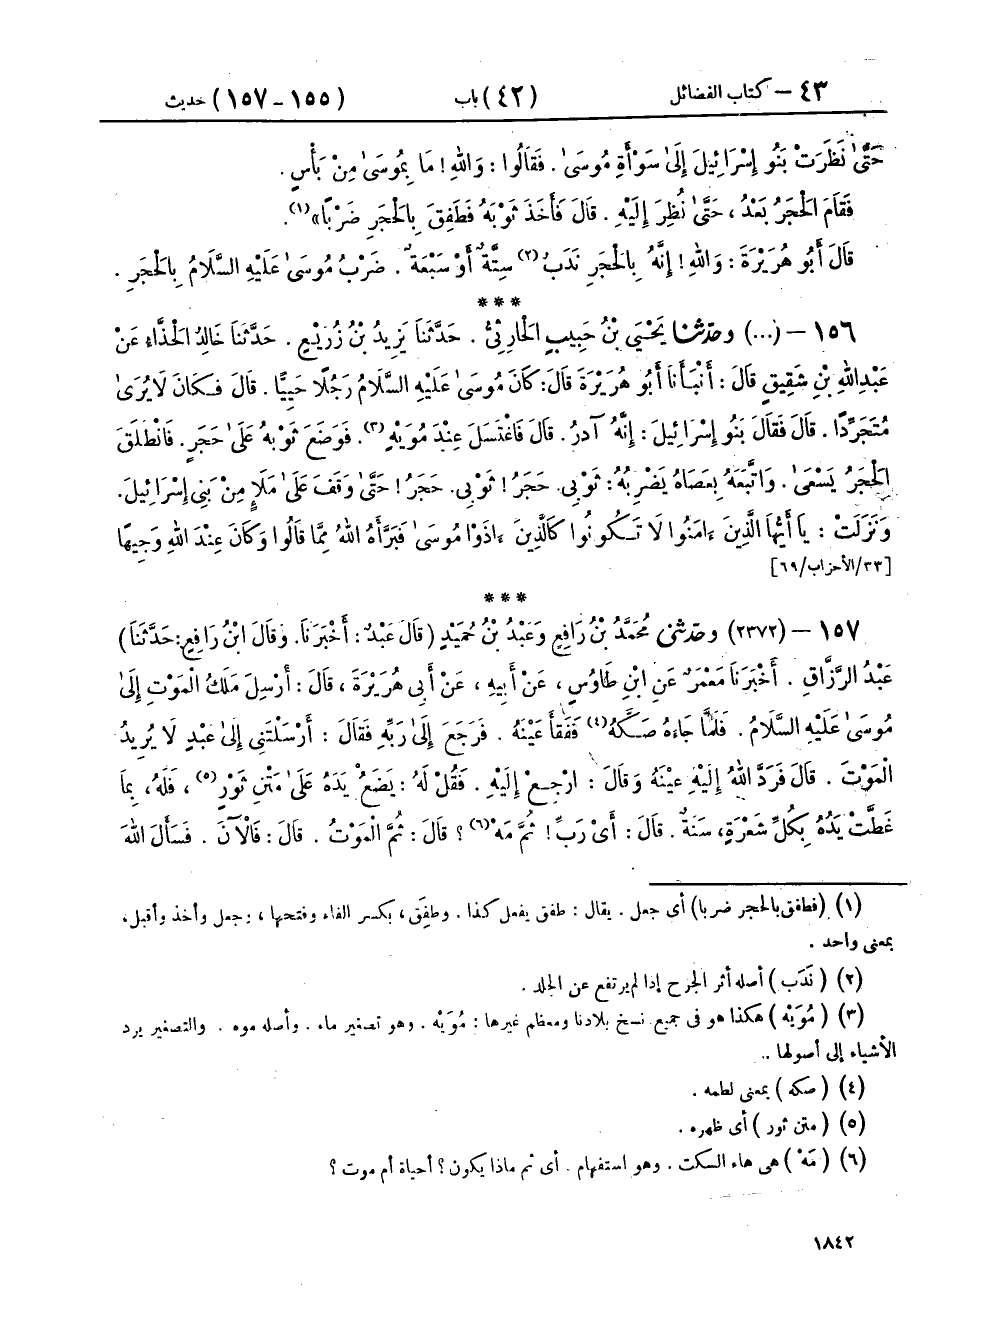 ٤٣ – كتاب الفضائل (٤٢) باب (١٥٥ – ١٥٧) حديث
حَتَّىٰ نَظَرَتْ بَنُو إِسْرَائِيلَ إِلَىٰ سَوْأَةِ مُوسَىٰ . فَقَالُوا : وَاللهِ ! مَا بِمُوسَىٰ مِنْ بَأْسٍ .
فَقَامَ الْحَجَرُ بَعْدُ ، حَتَّىٰ نُظِرَ إِلَيْهِ . قَالَ فَأَخَذَ ثَوْبَهُ فَطَفِقَ بِالْحَجَرِ ضَرْبًا»(١).
قَالَ أَبُو هُرَيْرَةَ : وَاللهِ ! إِنَّهُ بِالْحَجَرِ نَدَبٌ(٢) سِتَّةٌ أَوْ سَبْعَةٌ . ضَرْبُ مُوسَىٰ عَلَيْهِ السَّلَامُ بِالْحَجَرِ .
***
١٥٦ – (...) وحدّثنا يَحْيَىٰ بْنُ حَبِيبٍ الْحَارِثِيُّ . حَدَّثَنَا يَزِيدُ بْنُ زُرَيْعٍ . حَدَّثَنَا خَالِدٌ الْحَذَّاءُ عَنْ
عَبْدِاللهِ بْنِ شَقِيقٍ قَالَ : أَنْبَأَنَا أَبُو هُرَيْرَةَ قَالَ: كَانَ مُوسَىٰ عَلَيْهِ السَّلَامُ رَجُلًا حَيِيًّا . قَالَ فَكَانَ لَا يُرَىٰ
مُتَجَرِّدًا . قَالَ فَقَالَ بَنُو إِسْرَائِيلَ : إِنَّهُ آدَرُ . قَالَ فَاغْتَسَلَ عِنْدَ مُوَيْهٍ(٣). فَوَضَعَ ثَوْبَهُ عَلَىٰ حَجَرٍ . فَانْطَلَقَ
الْحَجَرُ يَسْعَىٰ . وَاتَّبَعَهُ بِعَصَاهُ يَضْرِبُهُ : ثَوْبِي. حَجَرُ ! ثَوْبِي. حَجَرُ ! حَتَّىٰ وَقَفَ عَلَىٰ مَلَإٍ مِنْ بَنِي إِسْرَائِيلَ.
وَنَزَلَتْ : يَا أَيُّهَا الَّذِينَ ءَامَنُوا لَا تَكُونُوا كَالَّذِينَ ءَاذَوْا مُوسَىٰ فَبَرَّأَهُ اللهُ مِمَّا قَالُوا وَكَانَ عِنْدَ اللهِ وَجِيهًا
[٣٣/الأحزاب/٦٩]
***
١٥٧ – (٢٣٧٢) وحدّثني مُحَمَّدُ بْنُ رَافِعٍ وَعَبْدُ بْنُ حُمَيْدٍ (قَالَ عَبْدٌ : أَخْبَرَنَا. وَقَالَ ابْنُ رَافِعٍ: حَدَّثَنَا)
عَبْدُ الرَّزَّاقِ . أَخْبَرَنَا مَعْمَرٌ عَنِ ابْنِ طَاوُسٍ ، عَنْ أَبِيهِ ، عَنْ أَبِي هُرَيْرَةَ ، قَالَ : أُرْسِلَ مَلَكُ الْمَوْتِ إِلَىٰ
مُوسَىٰ عَلَيْهِ السَّلَامُ . فَلَمَّا جَاءَهُ صَكَّهُ(٤) فَفَقَأَ عَيْنَهُ . فَرَجَعَ إِلَىٰ رَبِّهِ فَقَالَ : أَرْسَلْتَنِي إِلَىٰ عَبْدٍ لَا يُرِيدُ
الْمَوْتَ . قَالَ فَرَدَّ اللهُ إِلَيْهِ عَيْنَهُ وَقَالَ : ارْجِعْ إِلَيْهِ . فَقُلْ لَهُ : يَضَعُ يَدَهُ عَلَىٰ مَتْنِ ثَوْرٍ(٥) ، فَلَهُ ، بِمَا
غَطَّتْ يَدُهُ بِكُلِّ شَعْرَةٍ، سَنَةٌ . قَالَ : أَيْ رَبِّ ! ثُمَّ مَهْ(٦) ؟ قَالَ : ثُمَّ الْمَوْتُ . قَالَ : فَالْآنَ . فَسَأَلَ اللهَ
(١) (فطفق بالحجر ضربا) أى جعل . يقال : طفق يفعل كذا . وطفِق ، بكسر الفاء وفتحها ، وجعل وأخذ وأقبل،
بمعنى واحد .
(٢) ( نَدَب ) أصله أثر الجرح إذا لم يرتفع عن الجلد .
(٣) ( مُوَيْه ) هكذا هو فى جميع نسخ بلادنا ومعظم غيرها : مُوَيْه . وهو تصغير ماء . وأصله موه . والتصغير يرد
الأشياء إلى أصولها .
(٤) ( صكه ) بمعنى لطمه .
(٥) ( متن ثور ) أى ظهره .
(٦) ( مَهْ ) هى هاء السكت . وهو استفهام . أى ثم ماذا يكون ؟ أحياة أم موت ؟
١٨٤٢